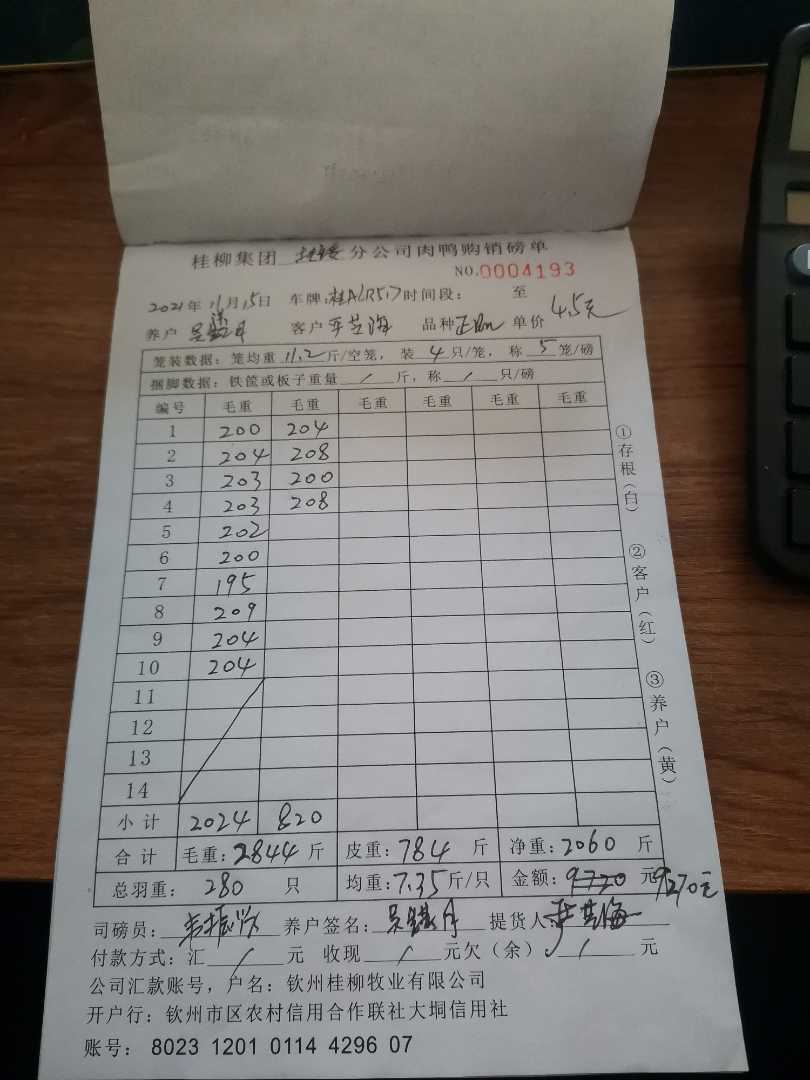 桂柳集团 分公司肉鸭购销磅单
NO.0004193
2021年11月15日 车牌:桂ALR517时间段: 至
养户 吴 月 客户 芝海 品种 单价 4.5元
笼装数据:笼均重 11.2 斤/空笼,装 4 只/笼,称 5 笼/磅
捆脚数据:铁筐或板子重量 / 斤,称 / 只/磅
编号 毛重 毛重 毛重 毛重 毛重 毛重
1 200 204
2 204 208
3 203 200
4 203 208
5 202
6 200
7 195
8 209
9 204
10 204
11
12
13
14
小计 2024 820
合计 毛重:2844 斤 皮重:784 斤 净重:2060 斤
总羽重: 280 只 均重:7.35斤/只 金额:9720 元 9270元
司磅员: 韦振 养户签名: 吴 月 提货人: 芝海
付款方式:汇 / 元 收现 / 元欠(余) / 元
公司汇款账号,户名:钦州桂柳牧业有限公司
开户行:钦州市区农村信用合作联社大垌信用社
账号: 8023 1201 0114 4296 07
①存根(白)
②客户(红)
③养户(黄)